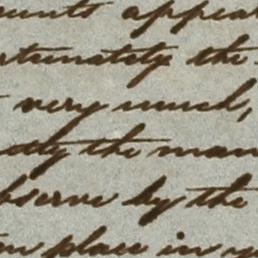 ounts appea
rtunately the
very much,
dly the man
bserve by the
en place in y